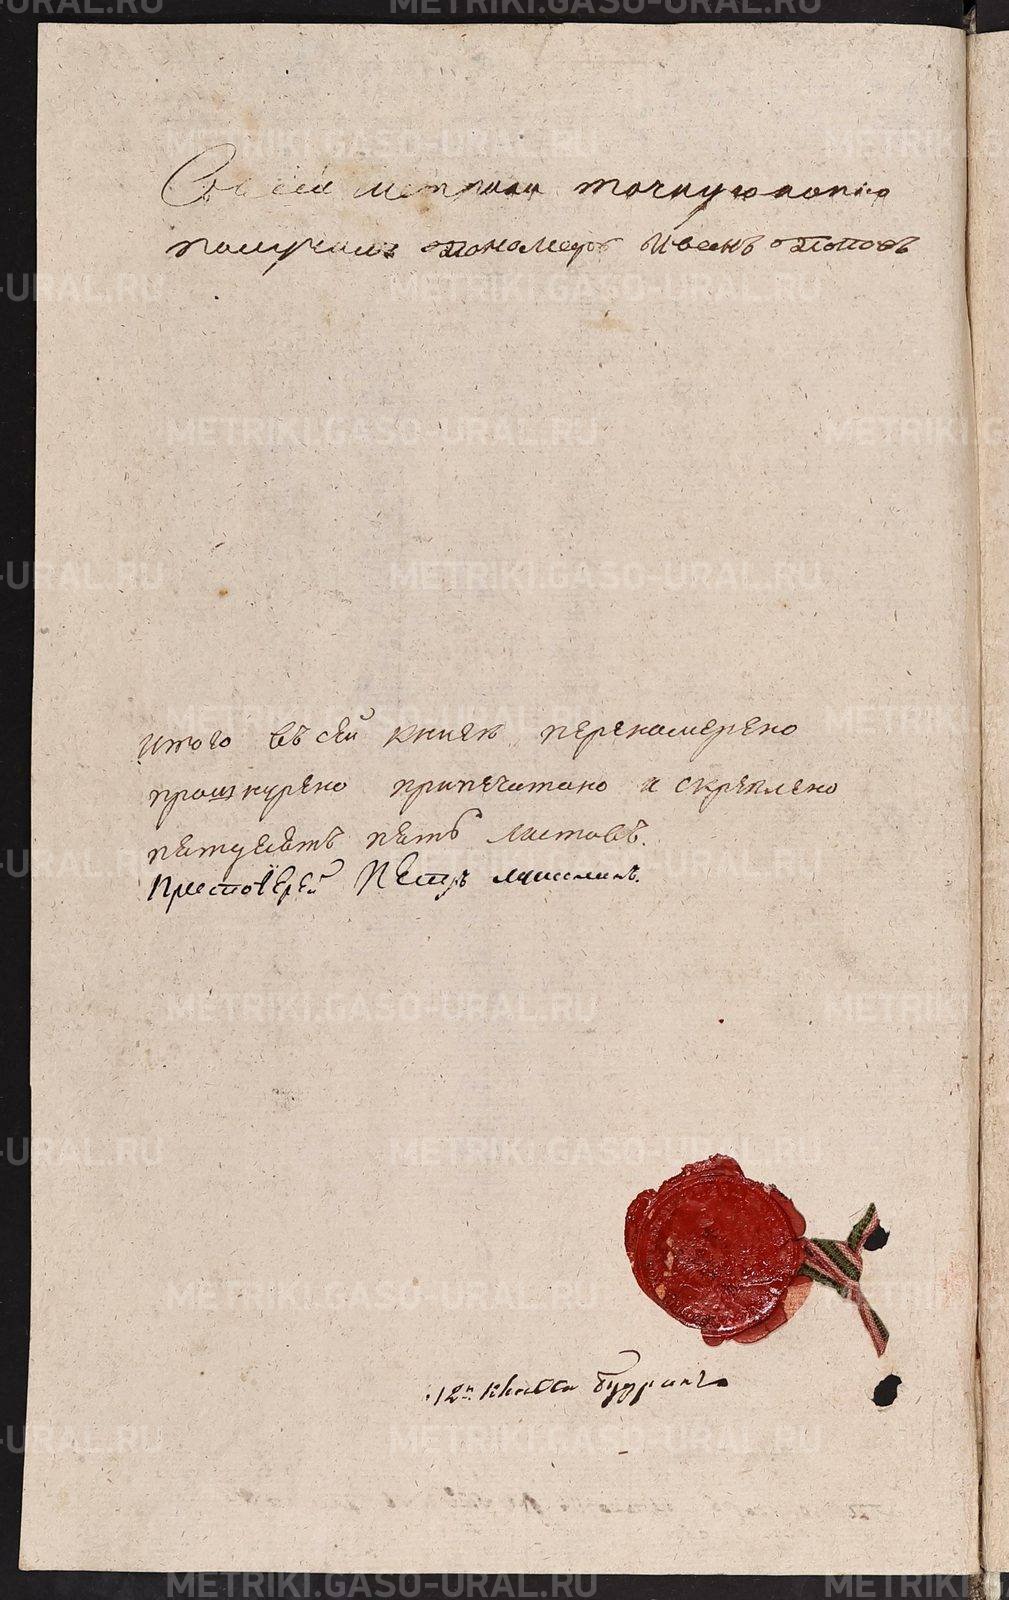 Съ сей метрики точную копию
получилъ пономарь Иванъ Поповъ
итого въ сей книгѣ перенумерено
прошнурено припечатано и скреплено
пятдесятъ пять листовъ.
Протоіерей Петръ
12го класса
METRIKI.GASO-URAL.RU